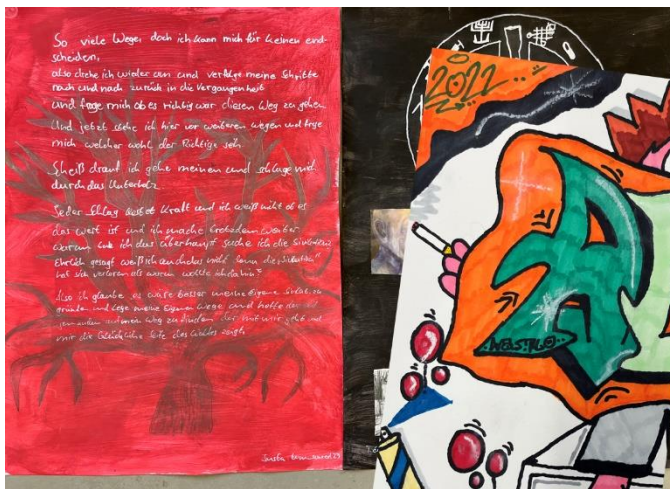 So viele Wege, doch ich kann mich für keinen ent
scheiden,
also drehe ich wieder um und verfolge meine Schritte
nach und nach zurück in die Vergangenheit
und frage mich ob es richtig war diesen Weg zu gehen.
Und jetzt stehe ich hier vor weiteren Wegen und frage
mich welcher wohl der Richtige sei.
Scheiß drauf ich gehe meinen und schlage mich
durch das Unterholz
Jeder Schlag kostet Kraft und ich weiß nicht ob es
das wert ist und ich mache trotzdem weiter
warum und ich das überhaupt suche ich die
Ehrlich gesagt weiß ich auch das nicht, denn die
hat sich verloren als warum wollte ich dahin?
Also ich glaube es wäre besser meine eigene
gründen und lege meine eigenen Wege und hoffe
jemanden auf meinem Weg zu finden der mit mir geht und
mir die Glückliche Seite des Lichtes zeigt.
2022